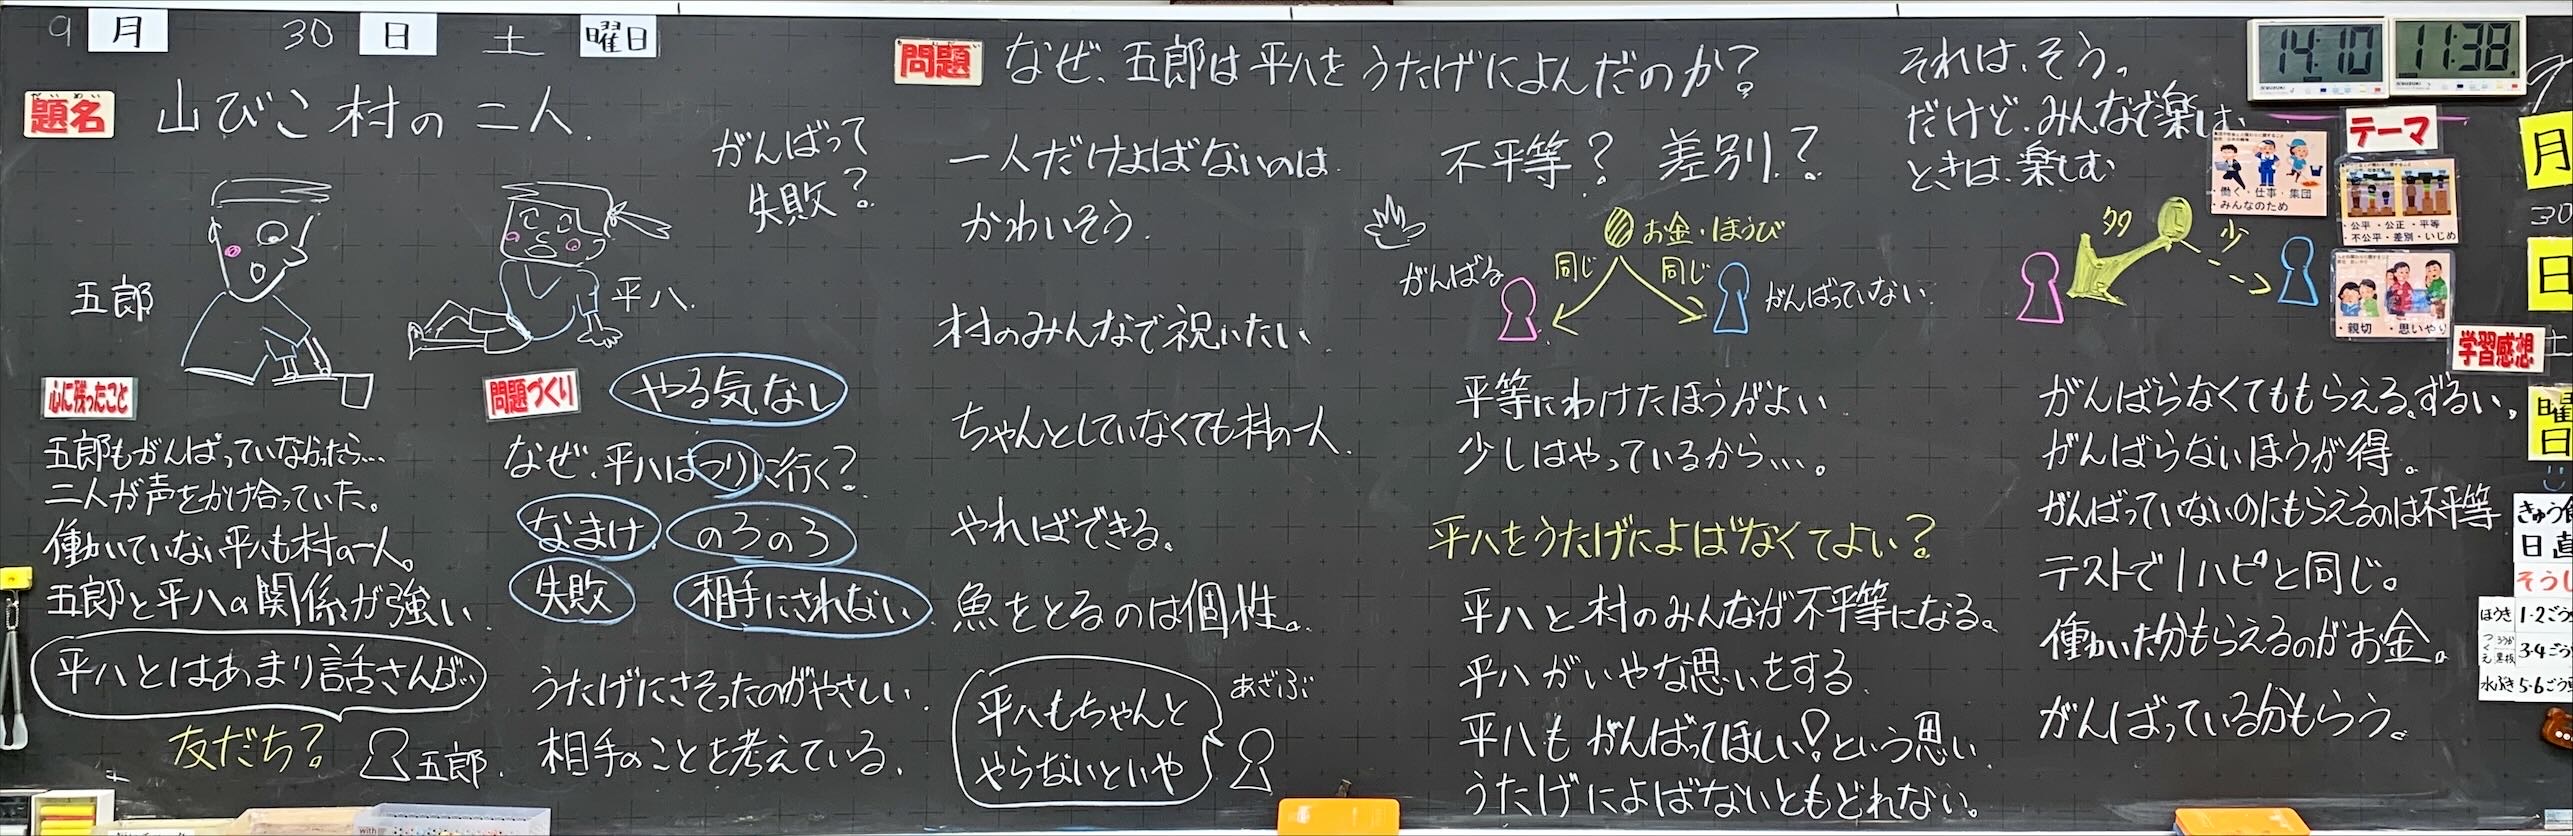 9月 30日 土曜日
題名 山びこ村の二人.
五郎
平八.
がんばって
失敗?
心に残ったこと
五郎もがんばっていなかったら…
二人が声をかけ合っていた。
働いていない平八も村の一人。
五郎と平八の関係が強い.
平八とはあまり話さんが…
友だち?
五郎.
問題づくり
やる気なし
なぜ、平八はつりに行く?
なまけ
のろのろ
失敗
相手にされない
うたげにさそったのがやさしい.
相手のことを考えている.
問題 なぜ、五郎は平八をうたげによんだのか?
一人だけよばないのは
かわいそう.
村のみんなで祝いたい
ちゃんとしていなくても村の一人.
やればできる。
魚をとるのは個性。
平八もちゃんと
やらないといや
あざぶ
不平等? 差別?
お金・ほうび
がんばる
同じ
同じ
がんばっていない
平等にわけたほうがよい
少しはやっているから…。
平八をうたげによばなくてよい?
平八と村のみんなが不平等になる。
平八がいやな思いをする.
平八もがんばってほしい!という思い
うたげによばないともどれない。
それは、そう。
だけど、みんなで楽しむ
ときは、楽しむ
多
少
14:10
11:38
テーマ
・働く・仕事・集団
・みんなのため
・公平・公正・平等
・不公平・差別・いじめ
・親切 ・思いやり
学習感想
がんばらなくてももらえる。ずるい。
がんばらないほうが得。
がんばっていないのにもらえるのは不平等
テストで1ハピと同じ。
働いた分もらえるのがお金。
がんばっている分もらう。
月
30
日
土
曜
日
きゅう
日直
そうじ
ほうき 1-2ごう
3-4ごう
水ぶき 5-6ごう
with